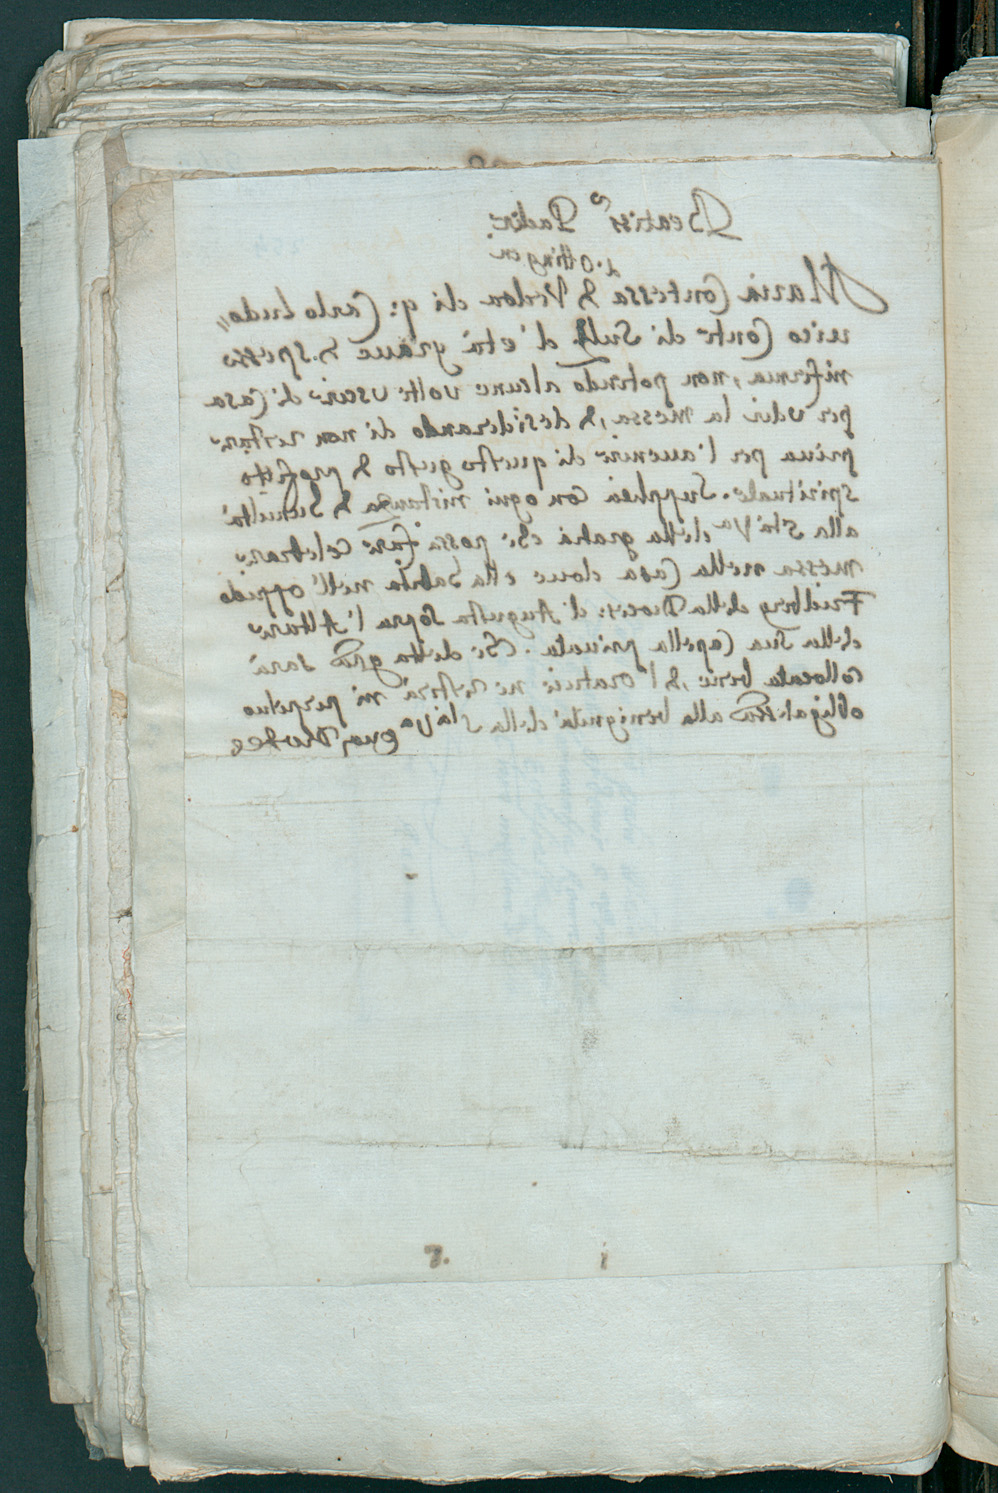 Beatiss.o Padre
d'Ottingen
Maria Contessa & Vedoa di q: Carlo Ludo„
uico Conte di Sultz d'età graue & spesso
infirma, non potendo alcune volte uscire di Casa
per udir la messa, & desiderando di non restare
priua per l'auenire di questo gusto & profitto
spirituale. Supplica con ogni instanza & humiltà
alla Stà Va della gratia che possa fare celebrare
messa nella Casa doue ella habita nell'oppido
Fridberg della Diocesi d'Augusta sopra l'Altare
della sua Capella priuata. Che detta gra sarà
collocata bene, & l'oratrice ne resterà in perpetuo
obligatissa alla benignità della Stà Va